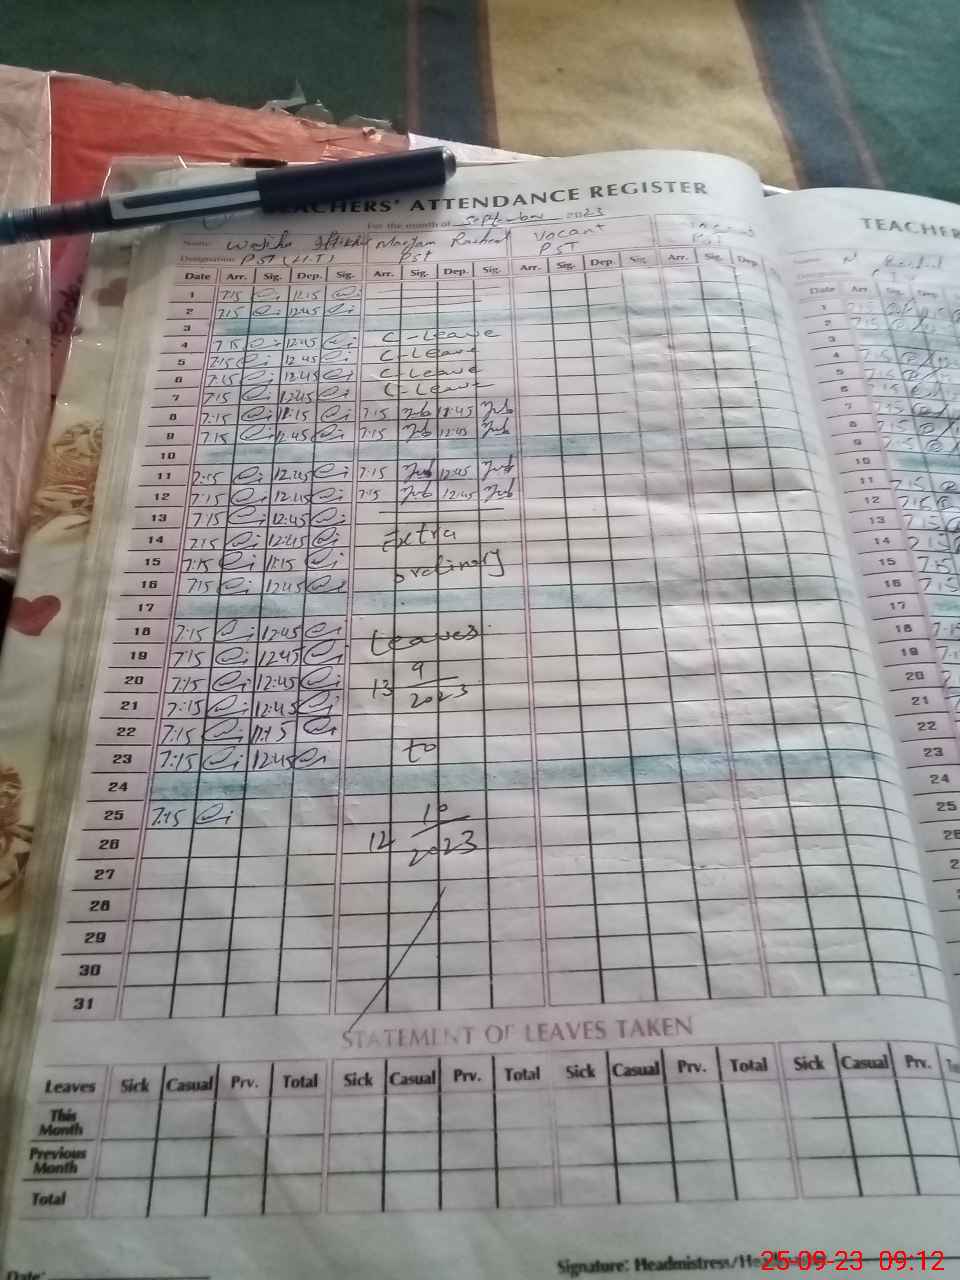 TEACHERS' ATTENDANCE REGISTER
For the month of September 2023
Name: Maryam Rasheed Vacant
Designation PST (H.T) PST PST
Date Arr. Sig. Dep. Sig. Arr. Sig. Dep. Sig. Arr. Sig. Dep. Sig. Arr. Sig. Dep.
1 7:15 11:15
2 7:15 12:45
3
4 7:15 12:45 C-Leave
5 7:15 12:45 C-Leave
6 7:15 12:45 C-Leave
7 7:15 12:45 C-Leave
8 7:15 11:15 7:15 11:45
9 7:15 12:45 7:15 12:45
10
11 7:15 12:45 7:15 12:45
12 7:15 12:45 7:15 12:45
13 7:15 12:45
14 7:15 12:45 Extra
15 7:15 11:15 ordinary
16 7:15 12:45
17
18 7:15 12:45 Leaves
19 7:15 12:45 9
20 7:15 12:45 13 2023
21 7:15 12:45
22 7:15 11:15 to
23 7:15 12:45
24
25 7:15 10
26 12 2023
27
28
29
30
31
STATEMENT OF LEAVES TAKEN
Leaves Sick Casual Prv. Total Sick Casual Prv. Total Sick Casual Prv. Total Sick Casual Prv.
This
Month
Previous
Month
Total
Date:
Signature: Headmistress/
TEACHER
Date Arr Sig. Dep.
1 7:15
2 7:15
3
4 7:15
5 7:15
6 7:15
7 7:15
8 7:15
9 7:15
10
11 7:15
12 7:15
13 7:15
14 7:15
15 7:15
16 7:15
17
18 7:15
19
20
21
22
23
24
25
25-09-23 09:12